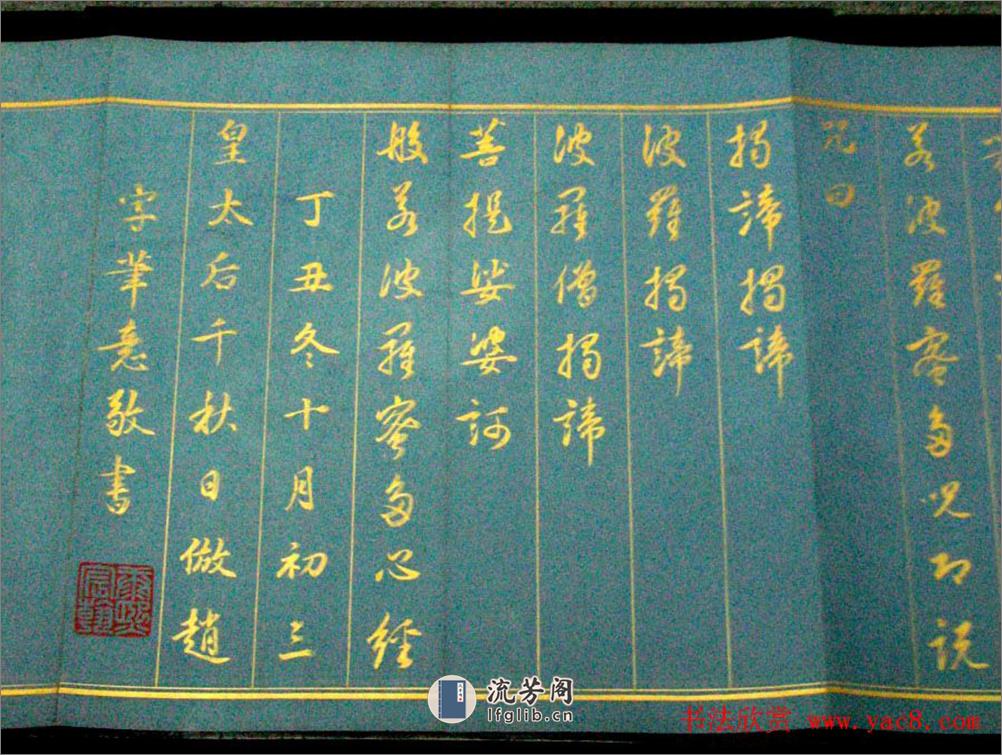 若波羅蜜多呪即説
咒曰
揭諦揭諦
波羅揭諦
波羅僧揭諦
菩提娑婆訶
般若波羅蜜多心經
丁丑冬十月初三
皇太后千秋日倣趙
字筆意敬書
康熙宸翰
流芳阁
lfglib.cn
书法欣赏 www.yac8.com